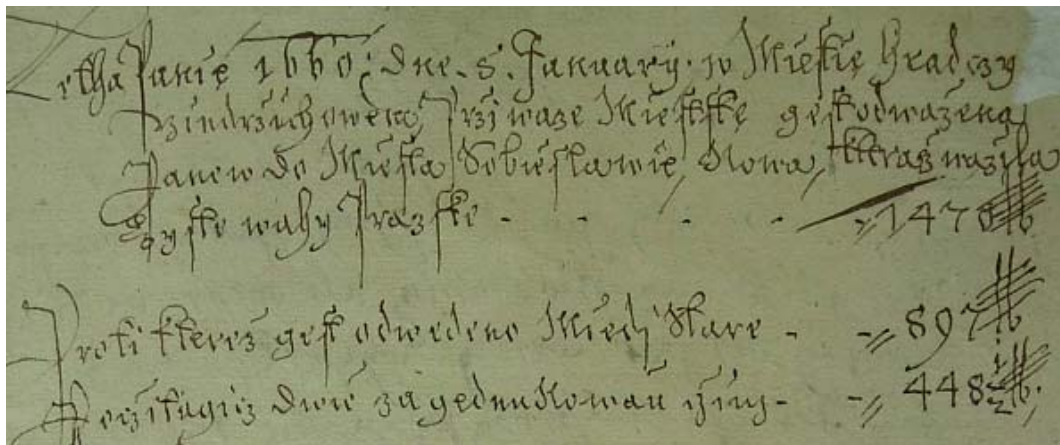 Letha Panie 1660: dne. 5. January. w Miestie Hradczy
Jzindrzichowem, Przi waze Miestske gest odwazena
Panew do Miesta Sobieslawie, Nowa, kteraz wazila
Czyste wahy Prazske - - - - 1470 lb
Proti kterez gest odwedeno Miedi Stare - - 897 lb
Poczitagicz dwie za geden Nowau czinj - - 448 1/2 lb;